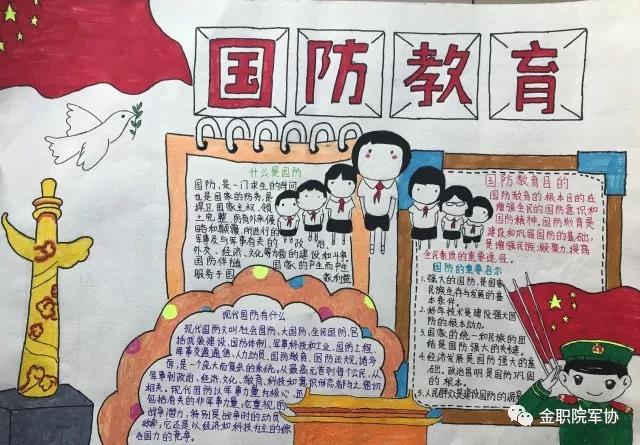 国防教育
什么是国防
国防,是一门求生的学问
也是国家的防务,是
捍卫国家主权、领
土完整,防御外来侵
略和颠覆,所进行的
军事及与军事有关的政治、
外交、经济、文化等方面的建设和斗争。
国防伴随国家的产生而产生
服务于国家利益
国防教育目的
国防教育的根本目的在
增强全民的国防意识和
国防精神。国防教育是
建设和巩固国防的基础,
是增强民族凝聚力、提高
全民素质的重要途径。
国防的重要启示
1.强大的国防,是国家
民族生存与发展的基
本条件。
2.科学技术是建设强大国
防的根本动力。
3.国家的统一和民族的团
结是国防强大的关键。
4.经济发展是国防强大的基
础。政治昌明是国防巩固
的根本。
5.人民群众是建设国防的源
现代国防有什么
现代国防又叫社会国防、大国防、全民国防,包
括武装建设、国防体制、军事科技和工业、国防工程、
军事交通通信、人力动员、国防教育、国防法规,诸多
面,是一个庞大而复杂的系统,从最高元首到每个公民,从
军事到政治、经济、文化、教育、科技和意识形态都与之密切
相关。现代国防以军事力量为核心,还
包括有关的非军事力量;它重视的
战争潜力,特别是战争时的动员
效率;它还是以经济和科技为主的综
合国力的竞争。
金职院军协